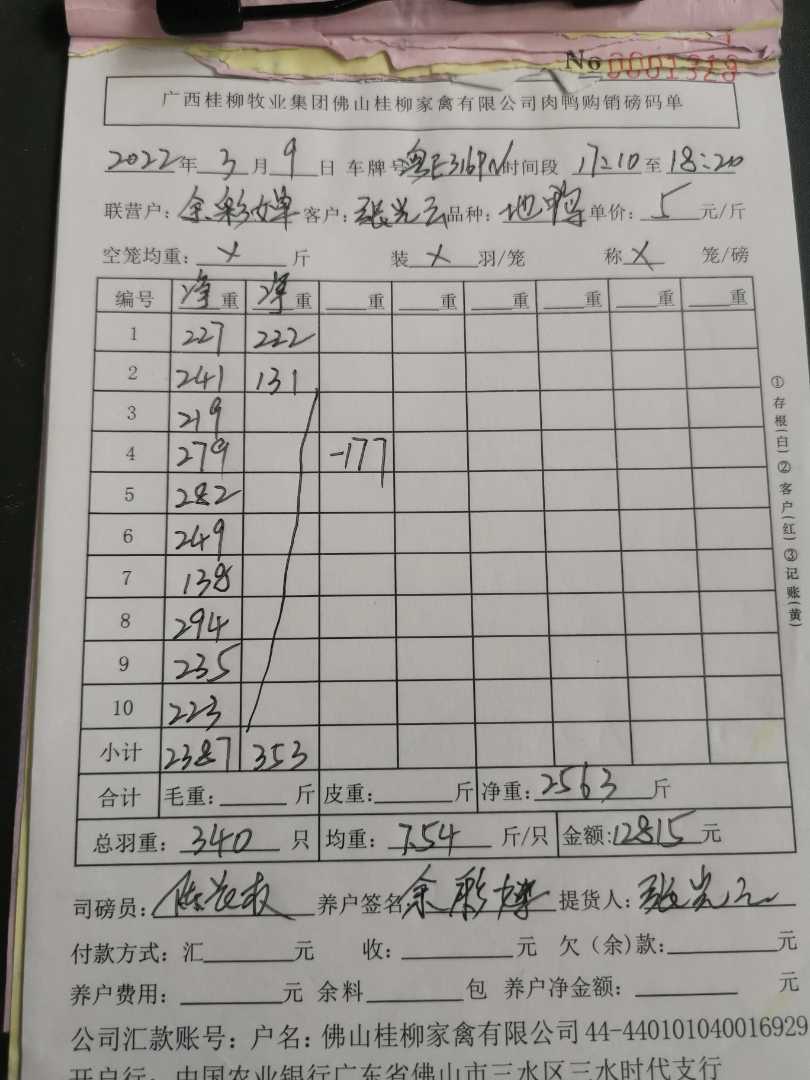 No 0001329
广西桂柳牧业集团佛山桂柳家禽有限公司肉鸭购销磅码单
2022年3月9日 车牌号粤E316PN时间段 17:10至18:20
联营户:余彩婵 客户:张光云 品种:地鸭 单价:5元/斤
空笼均重:×斤 装×羽/笼 称×笼/磅
编号 净重 净重 重 重 重 重 重 重
1 227 222
2 241 131
3 219
4 279 -177
5 282
6 249
7 138
8 294
9 235
10 223
小计 2387 353
合计 毛重: 斤 皮重: 斤 净重:2563斤
总羽重:340只 均重:7.54斤/只 金额:12815元
司磅员: 养户签名余彩婵 提货人:张光云
付款方式:汇 元 收: 元 欠(余)款: 元
养户费用: 元 余料 包 养户净金额: 元
公司汇款账号:户名:佛山桂柳家禽有限公司44-440101040016929
开户行:中国农业银行广东省佛山市三水区三水时代支行
①存根(白)②客户(红)③记账(黄)